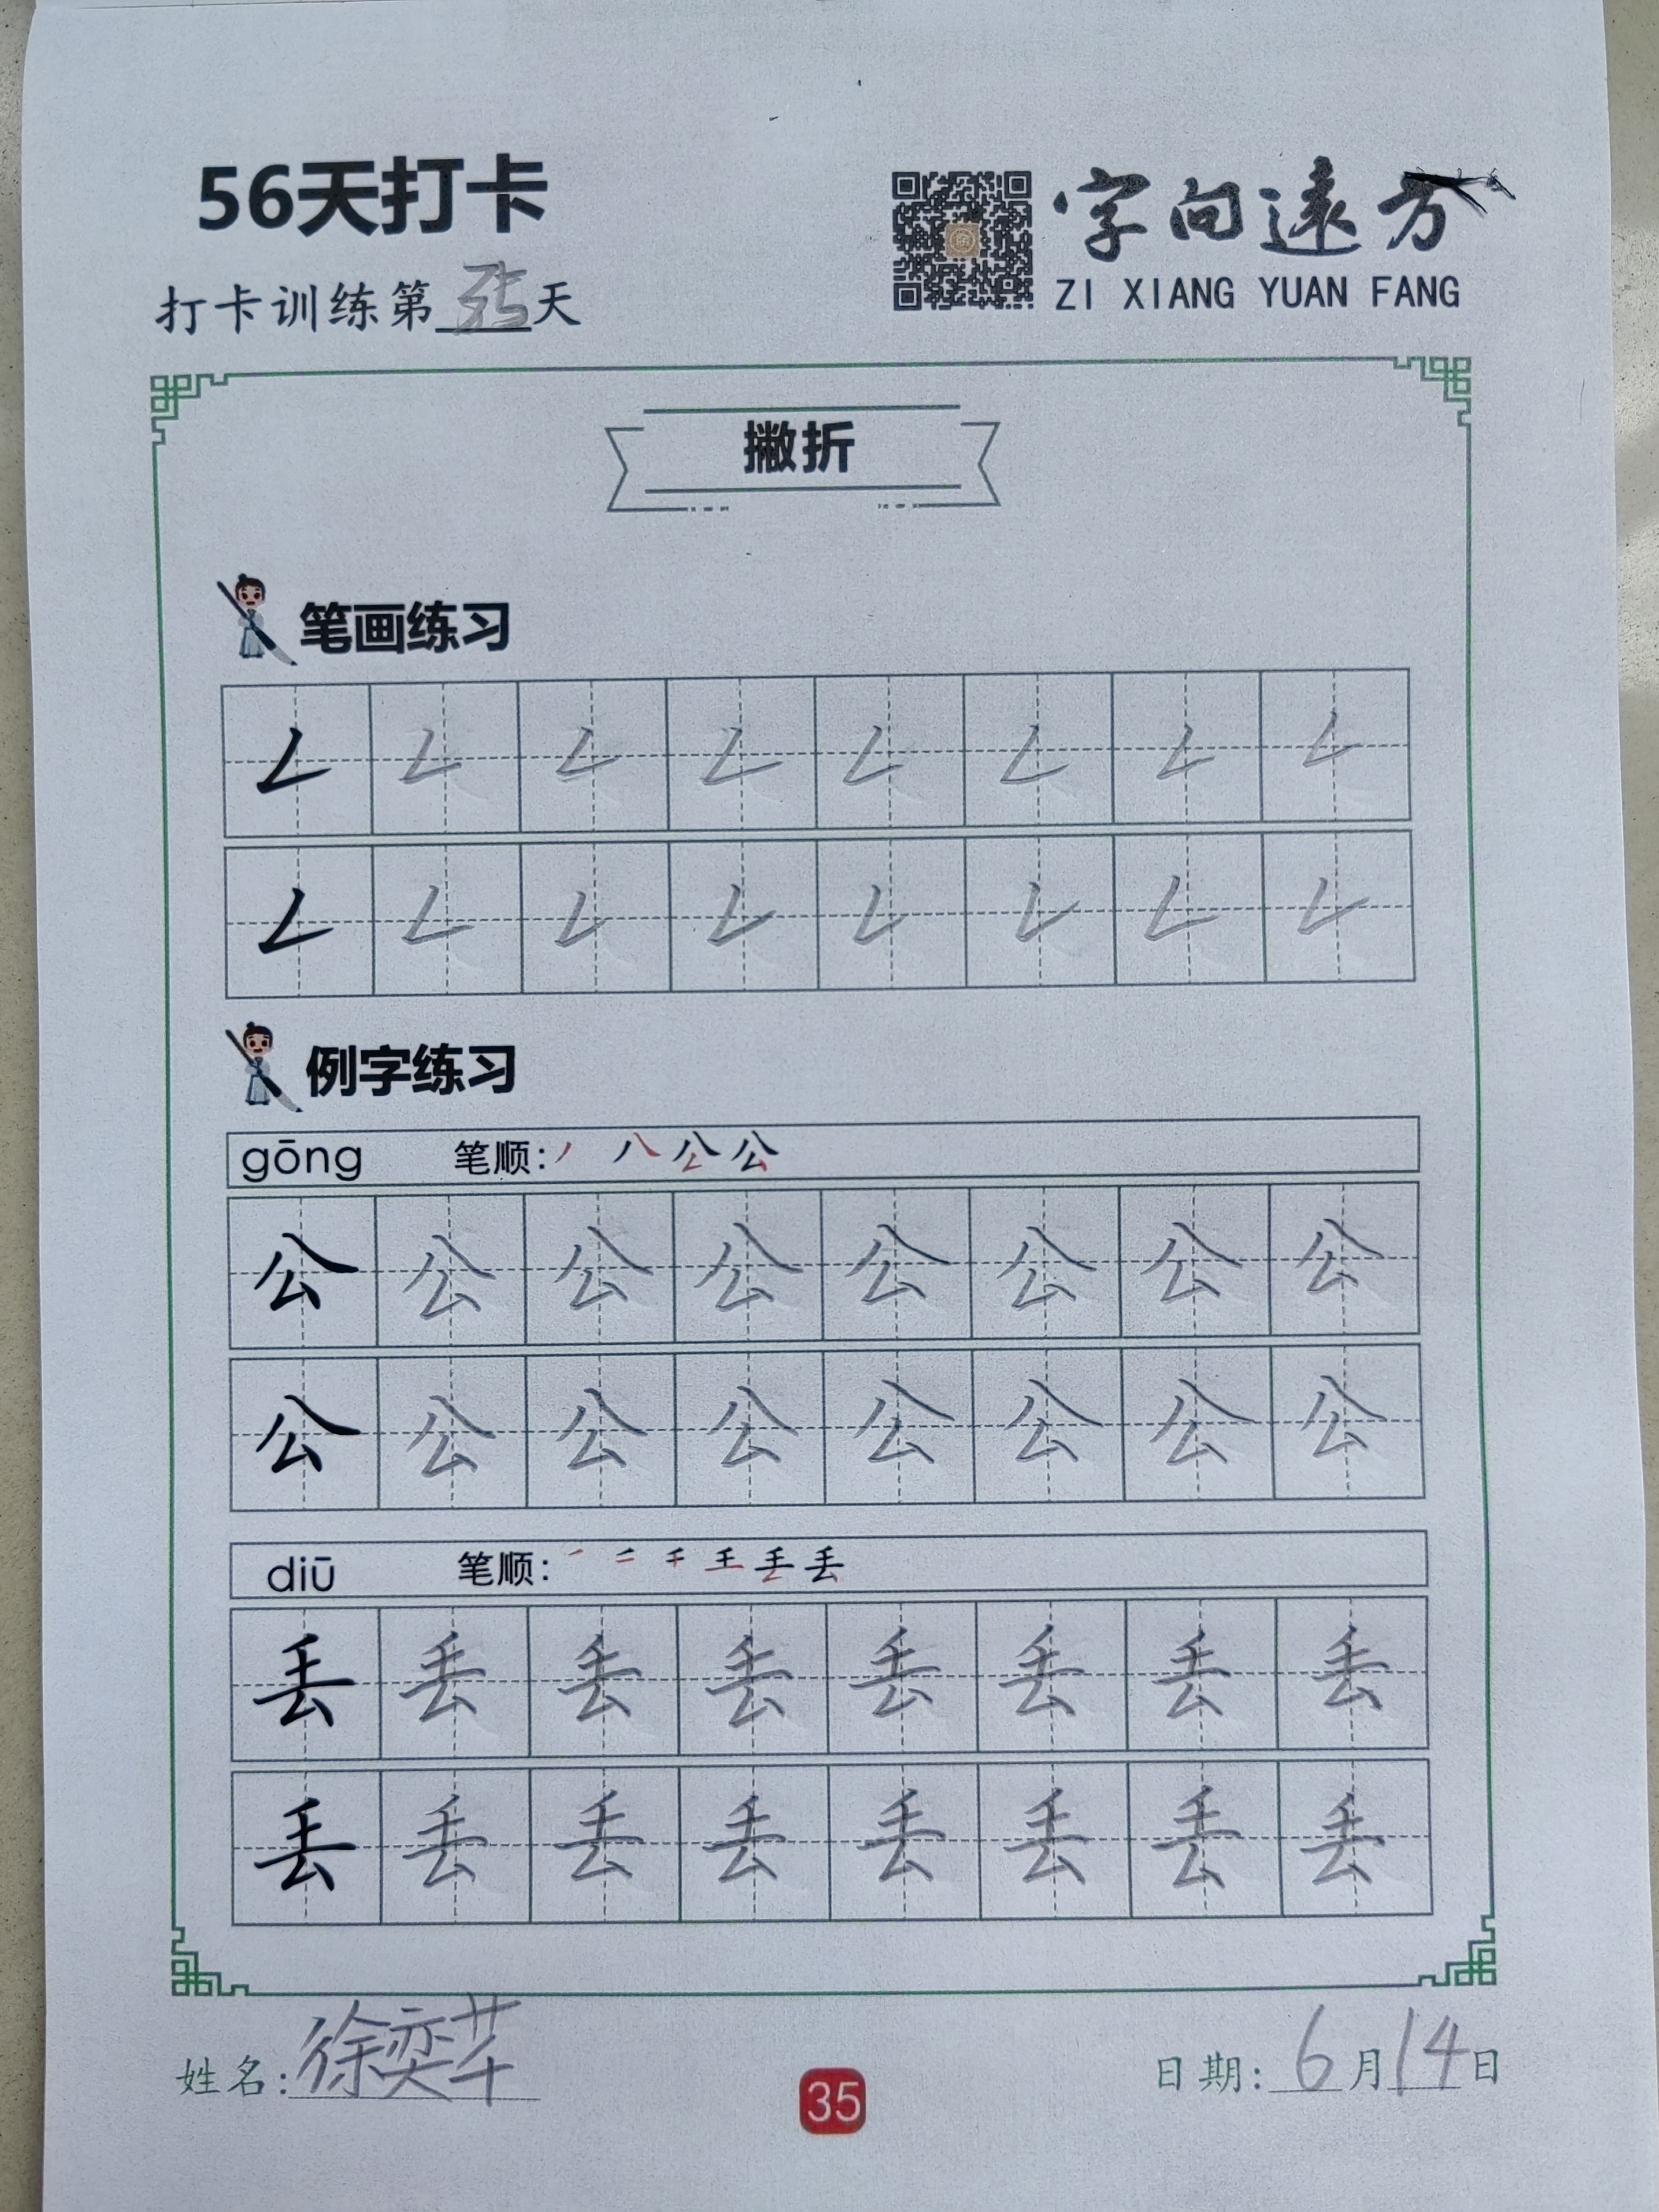 56天打卡
字向远方
ZI XIANG YUAN FANG
打卡训练第35天
撇折
笔画练习
例字练习
gōng 笔顺: 丿 八 公 公
公 公 公 公 公 公 公 公
公 公 公 公 公 公 公 公
diū 笔顺:
丢 丢 丢 丢 丢 丢 丢 丢
丢 丢 丢 丢 丢 丢 丢 丢
姓名: 徐奕芊
日期: 6月14日
35